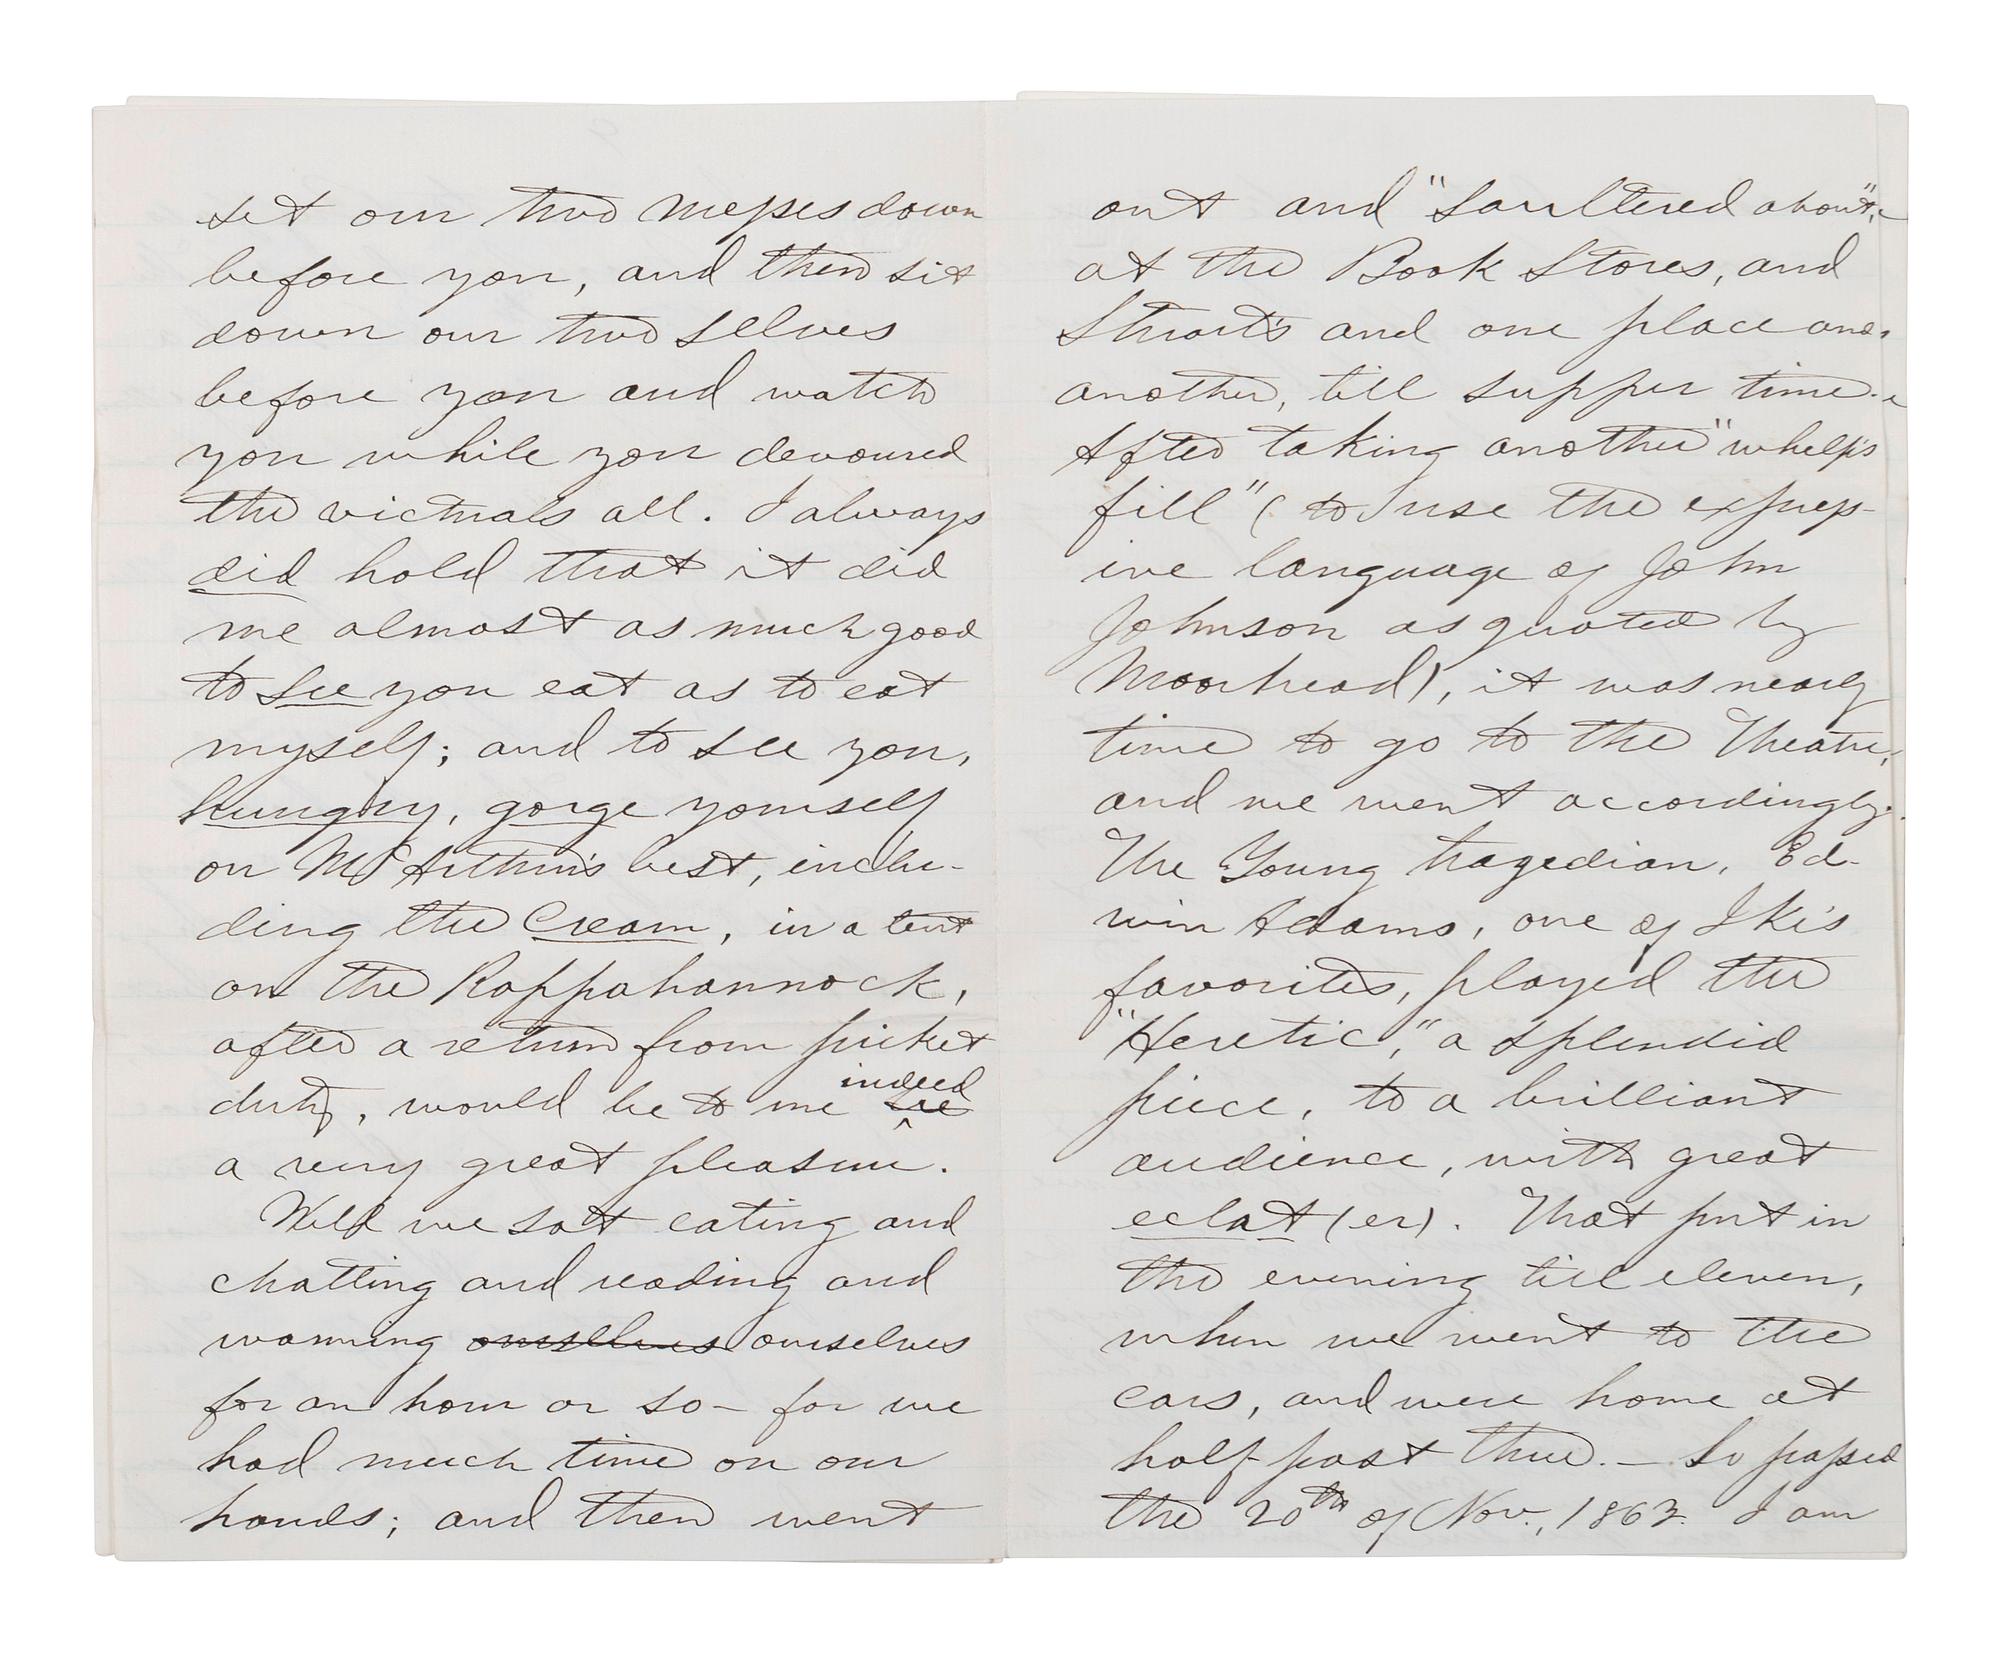 set our two messes down
before you, and then sit
down our two sellves
before you and watch
you while you devoured
the victuals all. I always
did hold that it did
me almost as much good
to see you eat as to eat
myself; and to see you,
hungry, gorge yourself
on McArthur's best, inclu-
ding the cream, in a tent
on the Rappahannock,
after a return from picket
duty, would be to me indeed
a very great pleasure.
Well we sat eating and
chatting and reading and
warming oursellves ourselves
for an hour or so – for we
had much time on our
hands; and then went
out and "saultered about",
at the Book Stores, and
Stuart's and one place and
another, till supper time.
After taking another "whelp's
fill" (to use the express-
ive language of John
Johnson as quoted by
Moorhead), it was nearly
time to go to the Theatre,
and we went accordingly.
The Young tragedian, Ed-
win Adams, one of Ike's
favorites, played the
"Heretic", a splendid
piece, to a brilliant
audience, with great
eclat (er). That put in
the evening till eleven,
when we went to the
cars, and were home at
half-past three. — So passed
the 20th of Nov., 1863. I am